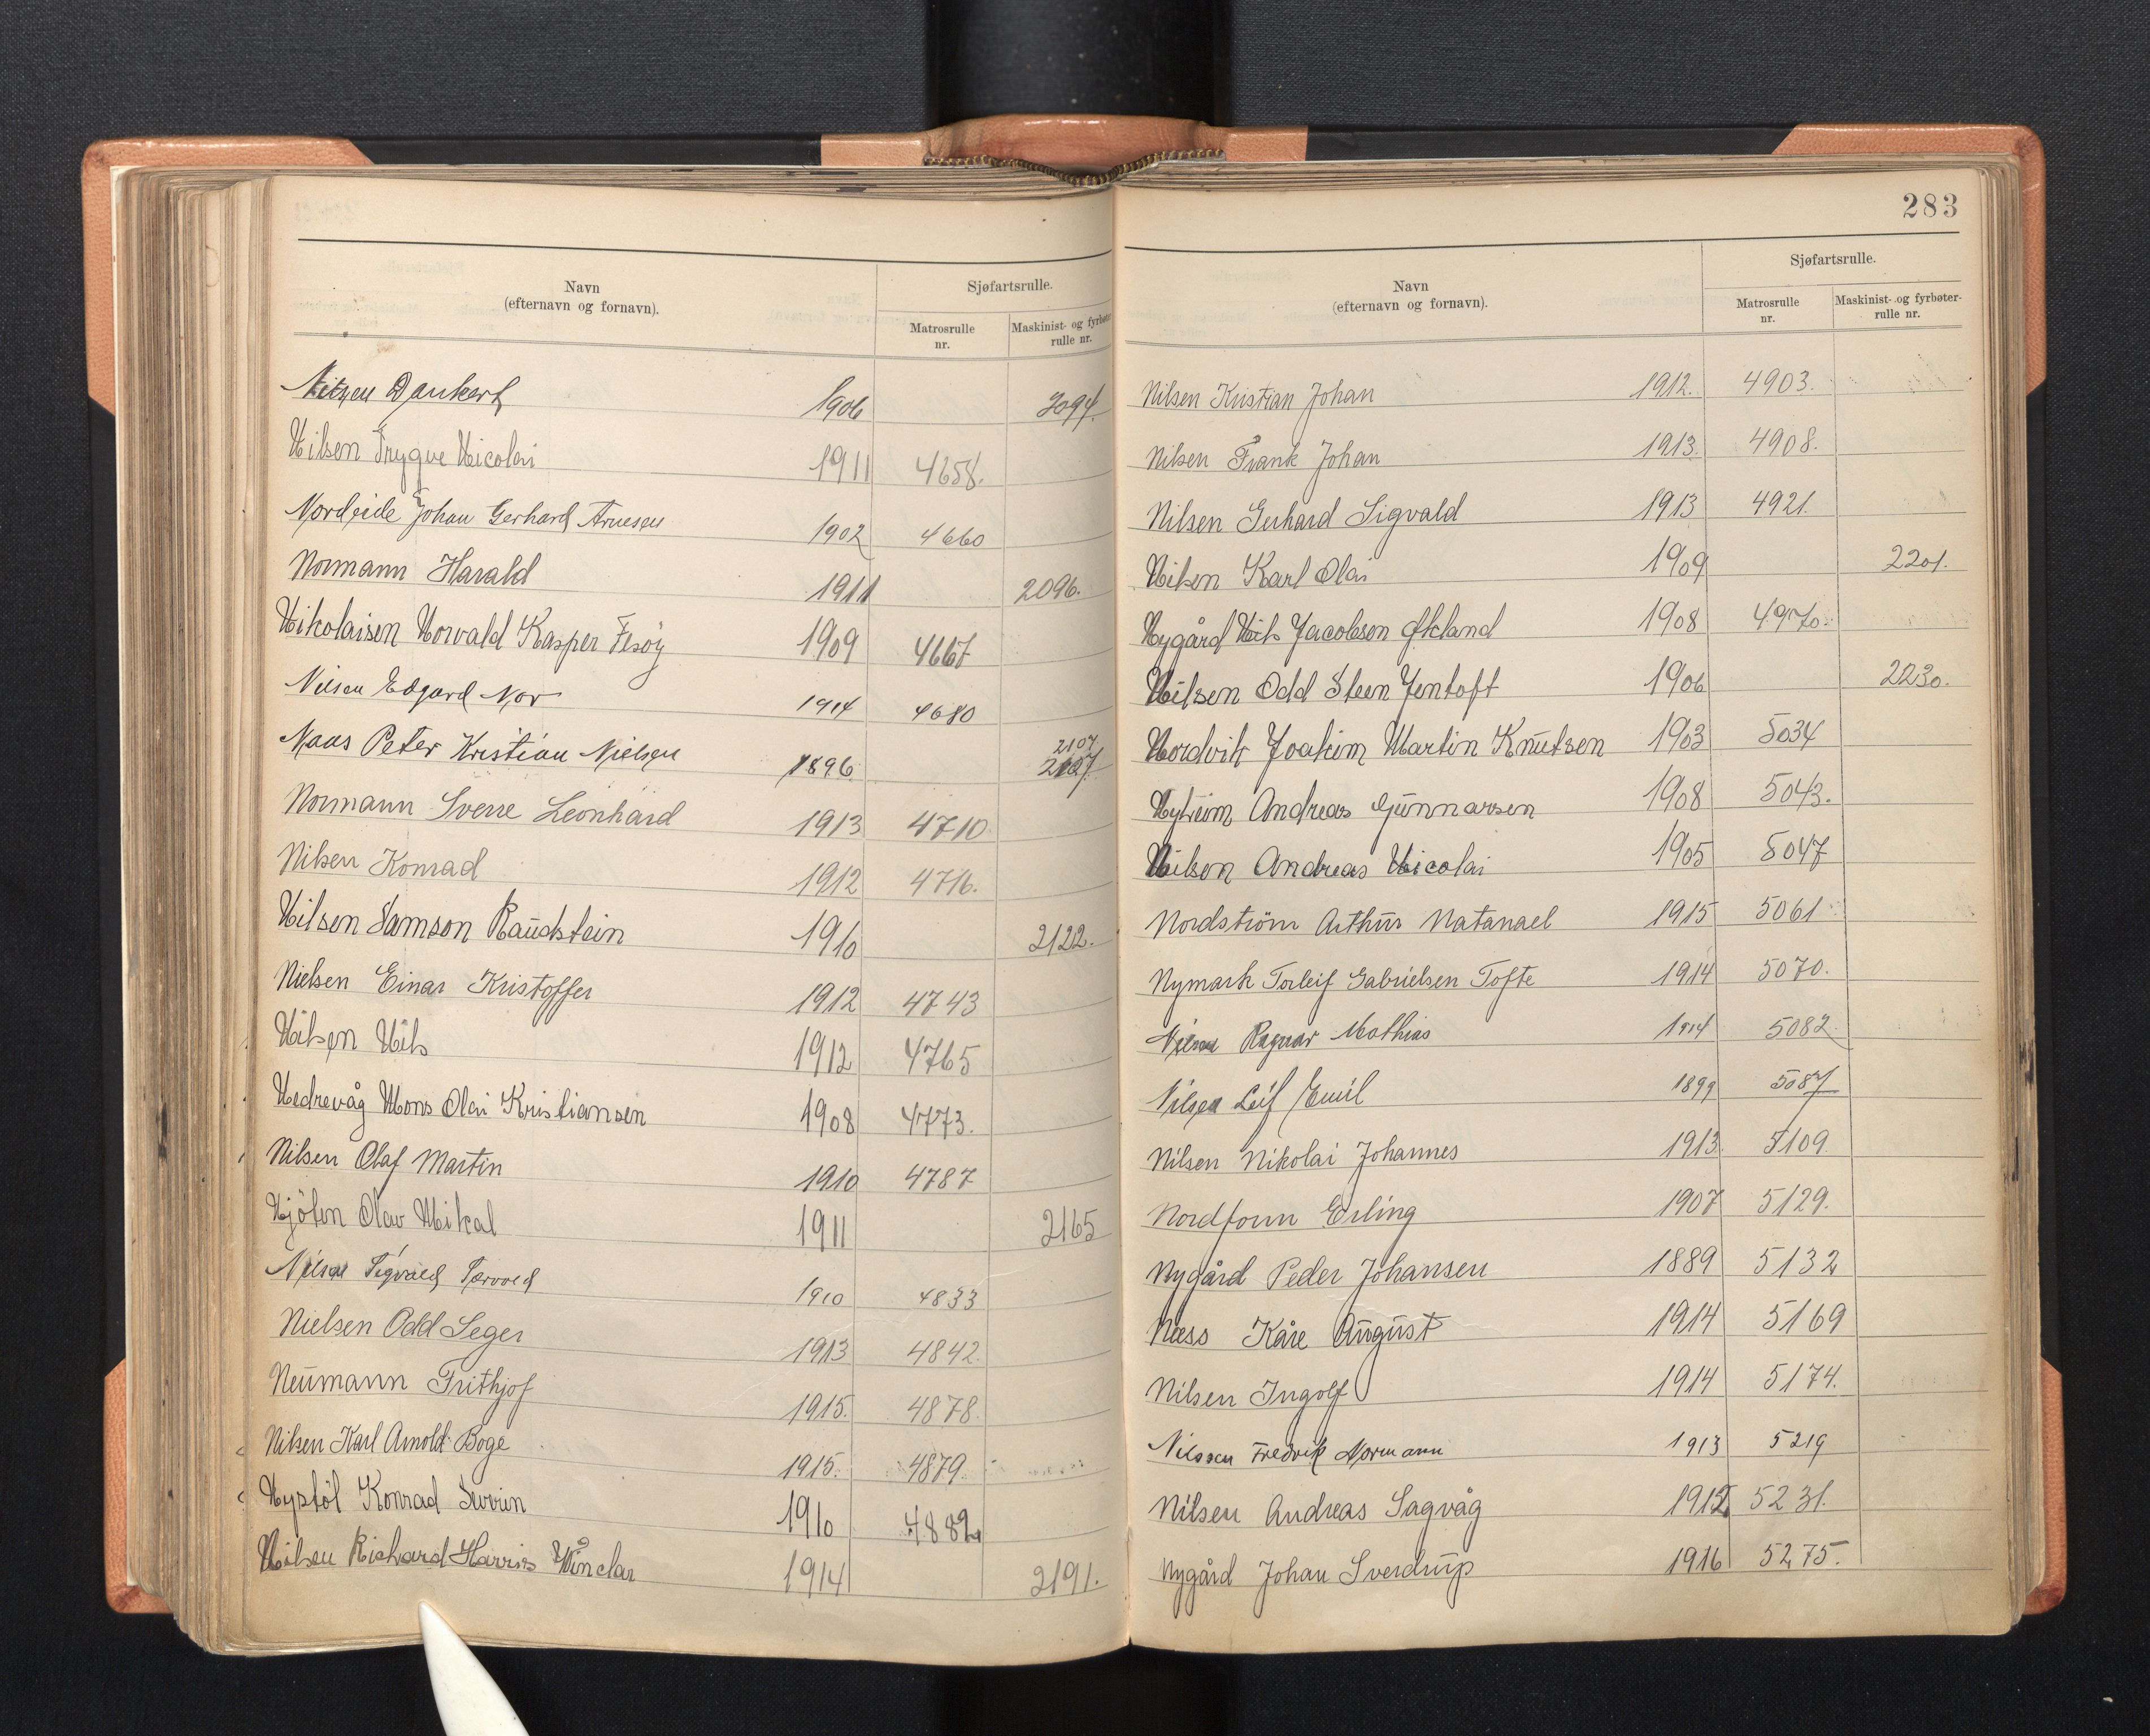 Navn
(efternavn og fornavn).
Sjøfartsrulle.
Matrosrulle
nr.
Maskinist- og fyrbøter-
rulle nr.
Nilsen Dankert 1906 2094.
Nilsen Trygve Nicolai 1911 4658.
Nordeide Johan Gerhard Arnesen 1902 4660
Normann Harald 1911 2096.
Nikolaisen Norvald Kasper Fesöy 1909 4667
Nilsen Edgard Nor 1914 4680
2107
Naas Peter Kristian Nielsen 1896 2107.
Normann Sverre Leonhard 1913 4710
Nilsen Konrad 1912 4716.
Nilsen Samson Raudstein 1910 2122.
Nielsen Einar Kristoffer 1912 4743
Nilsen Nils 1912 4765
Nedrevåg Mons Olai Kristiansen 1908 4773.
Nilsen Olaf Martin 1910 4787
Njölen Olav Mikal 1911 2165
Nilsen Sigvald 1910 4833
Nielsen Odd Seger 1913 4842.
Neumann Frithjof 1915. 4878.
Nilsen Karl Arnold Boge 1915. 4879.
Nystöl Konrad Severin 1910 4882
Nilsen Richard Harris Winclar 1914 2191.
283
Navn
(efternavn og fornavn).
Sjøfartsrulle.
Matrosrulle
nr.
Maskinist- og fyrbøter-
rulle nr.
Nilsen Kristian Johan 1912. 4903.
Nilsen Frank Johan 1913. 4908.
Nilsen Gerhard Sigvald 1913 4921
Nilsen Karl Olai 1909 2201.
Nygård Nils Jacobsen Økland 1908 4970.
Nilsen Odd Steen Jentoft 1906 2230.
Nordvik Joakim Martin Knutsen 1903 5034
Nytreim Andreas Gunnarsen 1908 5043.
Nilsen Andreas Nicolai 1905 5047
Nordström Arthur Natanael 1915 5061
Nymark Torleif Gabrielsen Tofte 1914 5070.
Nilsen Ragnar Mathias 1914 5082
Nilsen Leif Emil 1899 5087
Nilsen Nikolai Johannes 1913. 5109
Nordfonn Erling 1907 5129.
Nygård Peder Johansen 1889 5132
Næss Kåre August 1914 5169
Nilsen Ingolf 1914 5174.
Nilssen Fredrik Normann 1913 5219
Nilsen Andreas Sagvåg 1912 5231.
Nygård Johan Sverdrup 1916 5275.